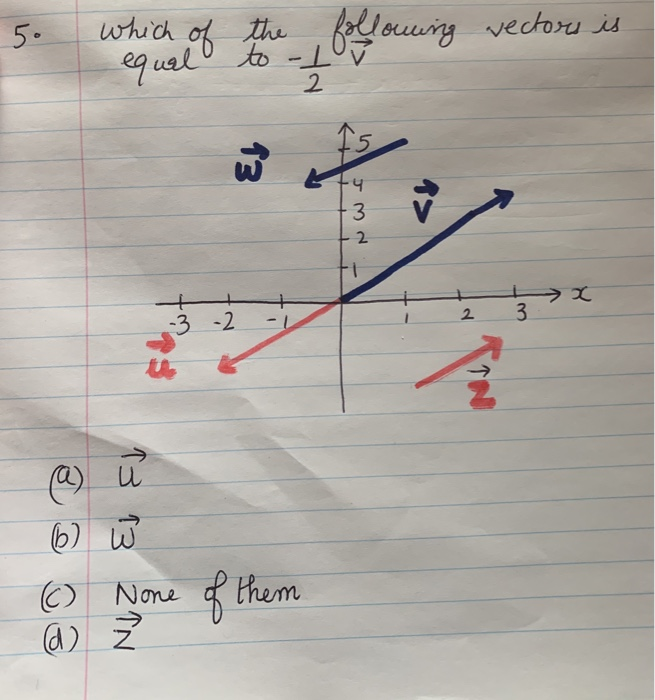 5. which of the following vectors is
equal to -1/2 v⃗
5
w⃗
4
v⃗
3
2
1
x
-3 -2 -1 1 2 3
u⃗
z⃗
(a) u⃗
(b) w⃗
(c) None of them
(d) z⃗